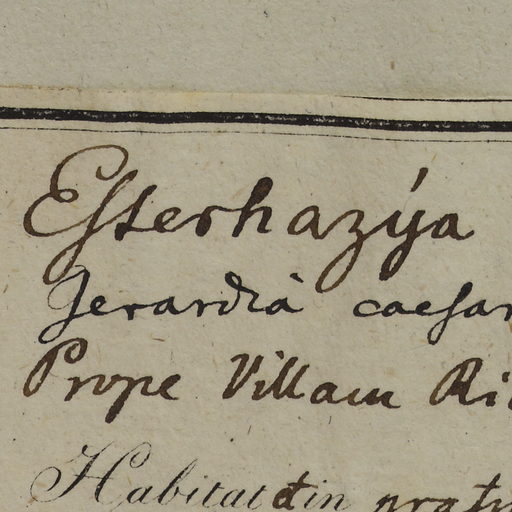 Esterhazýa
Gerardià caesar
Prope Villam Ri
Habitat in